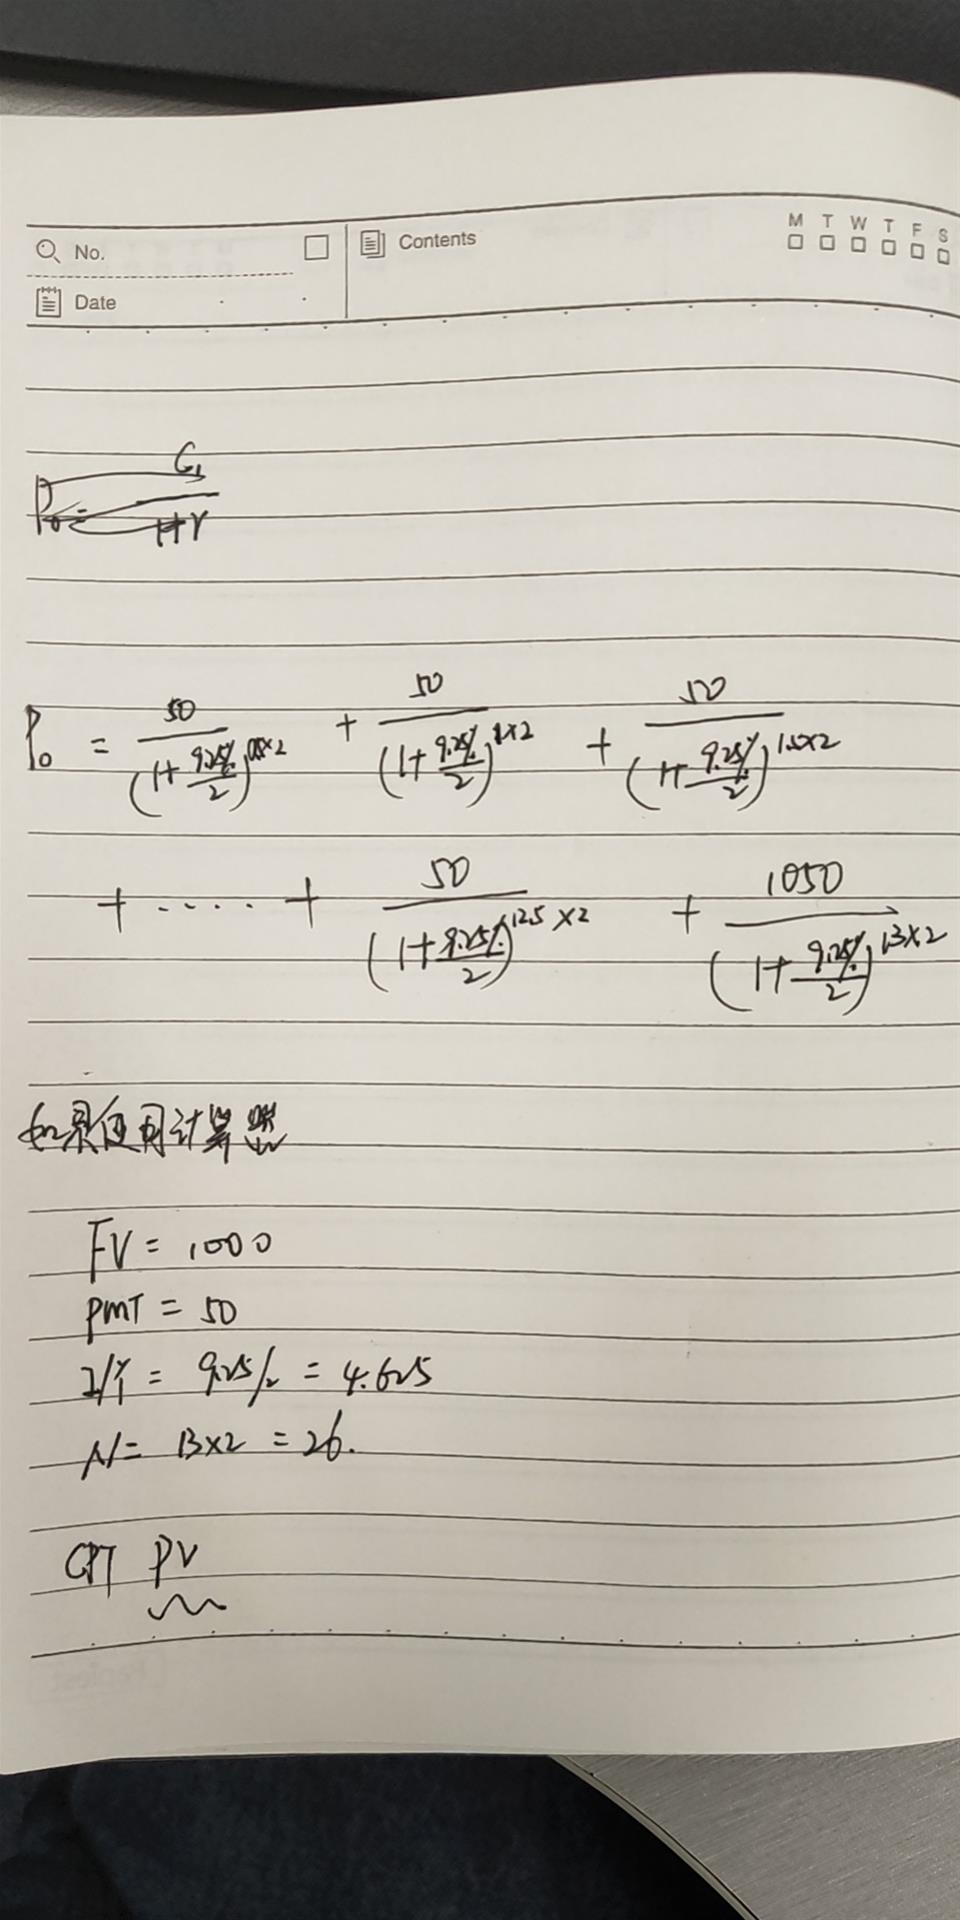 No.
Contents
M T W T F S
Date
C₁
P₀ =
1+r
P₀ = 50/(1+9.25%/2)^0.5×2 + 50/(1+9.25%/2)^1×2 + 50/(1+9.25%/2)^1.5×2
+ ..... + 50/(1+9.25%/2)^12.5×2 + 1050/(1+9.25%/2)^13×2
如果使用计算器
FV = 1000
PMT = 50
I/Y = 9.25/2 = 4.625
N = 13×2 = 26.
CPT PV